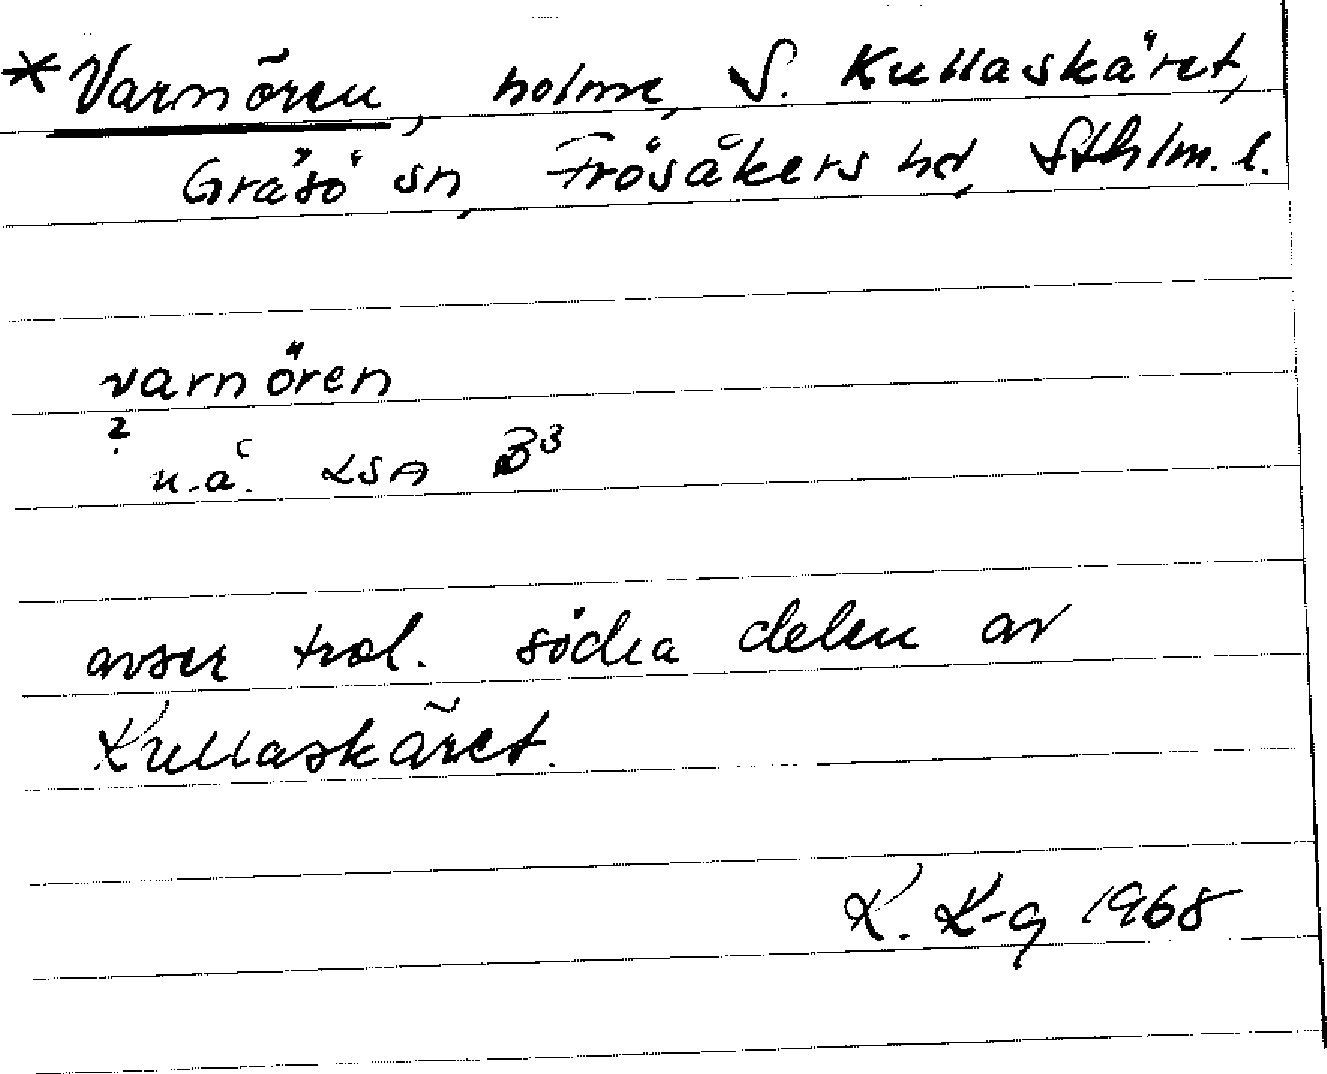 *Varnören, holme, S. Kullaskäret,
Gräsö sn, Frösåkers hd, Sthlm. l.
varnören
?
u.å. LSA B3
avser trol. södra delen av
Kullaskäret.
K. K-g 1968